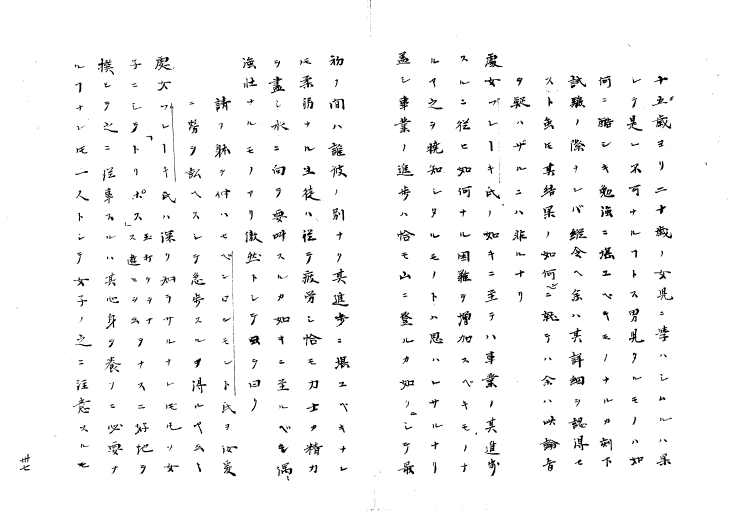 十五歳ヨリ二十歳ノ女児ニ學ハシムルハ果
シテ是レ不可ナルフトス男児タルモノハ如
何ニ酷シキ勉強ニ堪ユベキモノナルカ刻下
試驗ノ際ナレバ縱令ヘ余ハ其詳細ヲ認得セ
スト虽モ其結果ノ如何ニ就テハ余ハ此論旨
ヲ疑ハザルニハ非ルナリ
處女ブレーキ氏ノ如キニ至テハ事業ノ其進歩
スルニ従ヒ如何ナル困難ヲ増加スベキモノナ
ルヤ之ヲ暁知シタルモノトハ思ハレサルナリ
蓋シ事業ノ進歩ハ恰モ山ニ登ルカ如リニシテ最
初ノ間ハ誰彼ノ別ナク其進歩ニ堪ユベキナレ
ᅟモ柔弱ナル生徒ハ従テ疲労シ恰モ力士ヲ精力
ヲ盡シ水ニ向テ要叫スルカ如キニ至ルベキ偶
強壮ナルモノアリ傲然トシテ曰テ曰ク
請フ躰ヲ仲ハセベンロルモント氏ヲ汝愛
ニ勞ヲ訟ヘスシテ急歩スルヲ得ルヤ云々
處女ブレーキ氏ハ深ク知ラサルナレモモソ女
子ニシテ「トリポス」玉打クラナス遊ヒヲ云ヲナスニ好地ヲ
撰ヒテ之ニ従事スルハ其心身ヲ養フニ必要ナ
ルフナレモ一人トシテ女子ノ之ニ注意スルモ
卅七